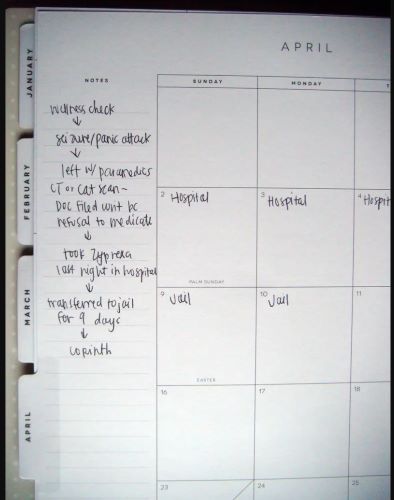 APRIL
JANUARY
FEBRUARY
MARCH
APRIL
NOTES
wellness check
↓
seizure/panic attack
↓
left w/ paramedics
CT or Cat scan-
Doc filed writ bc
refusal to medicate
↓
took Zyprexa
last night in hospital
↓
transferred to jail
for 9 days
↓
Corinth
SUNDAY MONDAY T
2 Hospital 3 Hospital 4 Hospit
PALM SUNDAY
9 Jail 10 Jail 11
EASTER
16 17 18
23 24 25